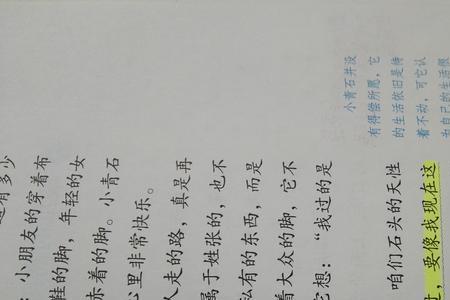 有多少
：小朋友的穿着布
鞋的脚，年轻的女
赤着的脚。小青石
心里非常快乐。
人走的路，真是再
属于姓张的，也不
私有的东西，而是
着大众的脚，它不
它想：“我过的是
咱们石头的天性
，要像我现在这
小青石并没
有得偿所愿，它
的生活依旧是待
着不动，可它认
为自己的生活很